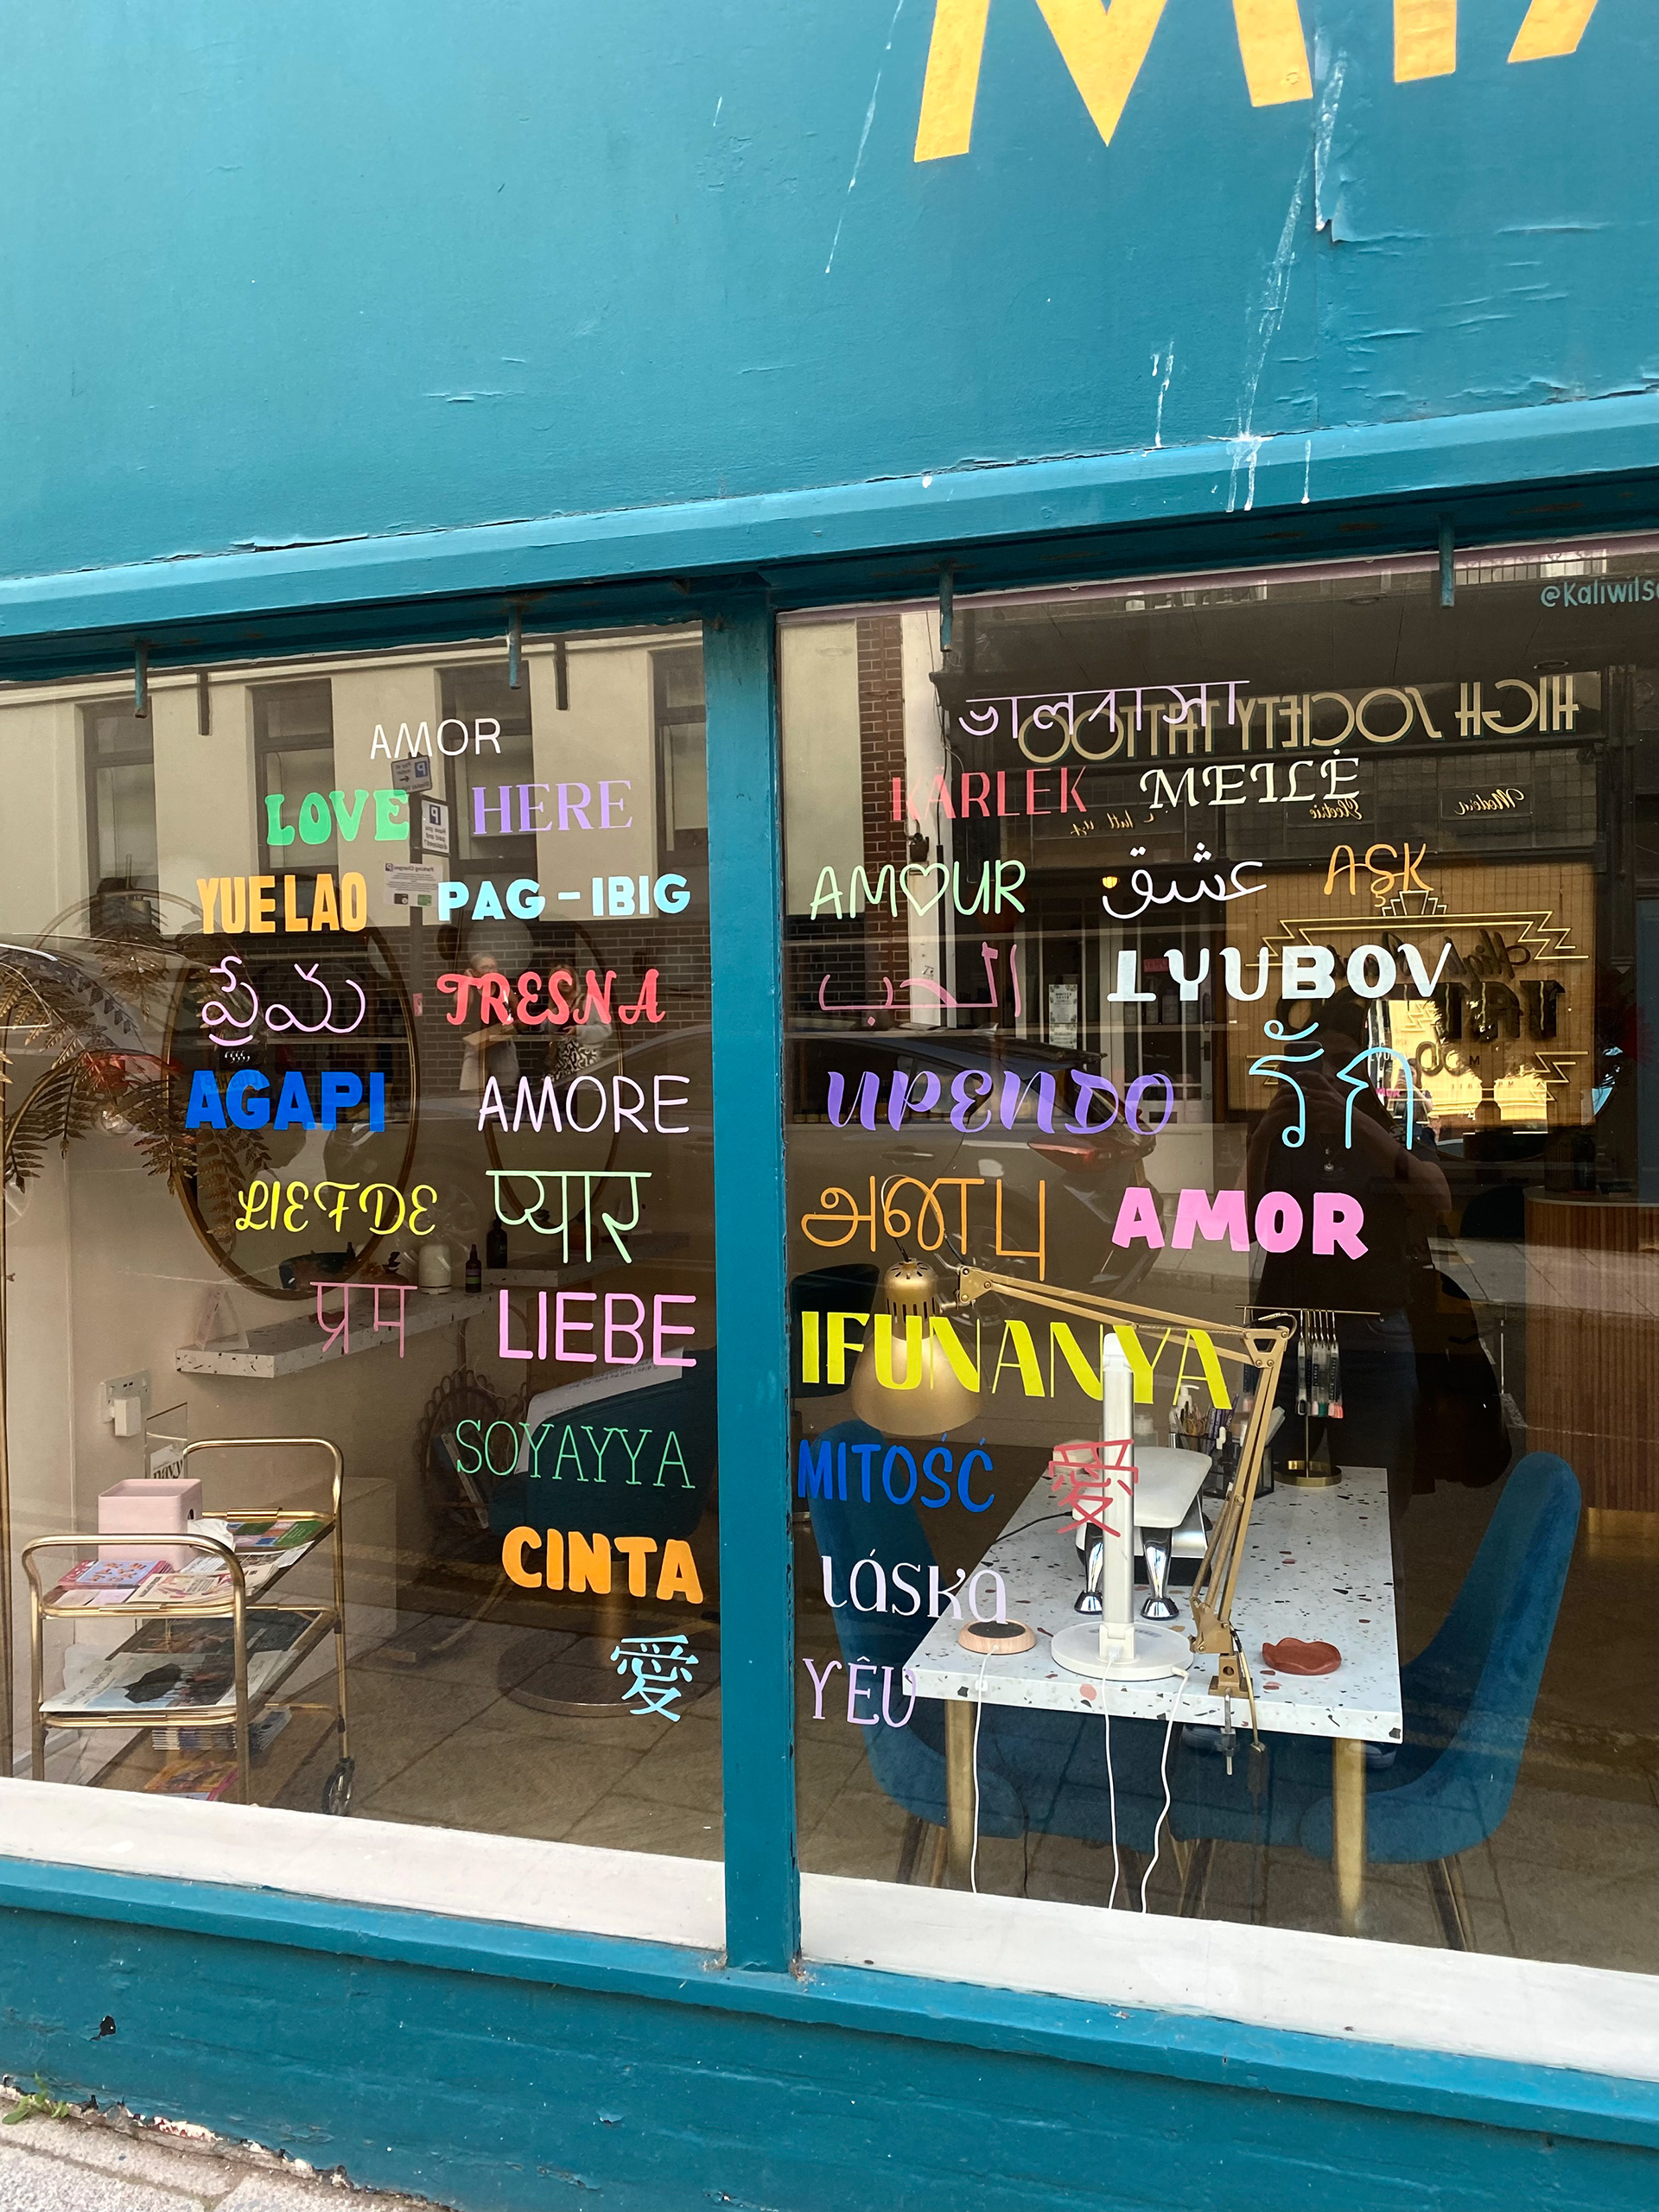 @Kaliwils
AMOR
LOVE HERE
YUE LAO PAG-IBIG
ప్రేమ TRESNA
AGAPI AMORE
LIEFDE प्यार
प्रम LIEBE
SOYAYYA
CINTA
愛
ভালবাসা
KARLEK MEILĖ
AMOUR عشق AŞK
الحب LYUBOV
UPENDO รัก
அன்பு AMOR
IFUNANYA
MITOŚĆ 愛
láska
YÊU
HIGH SOCIETY TATTOO